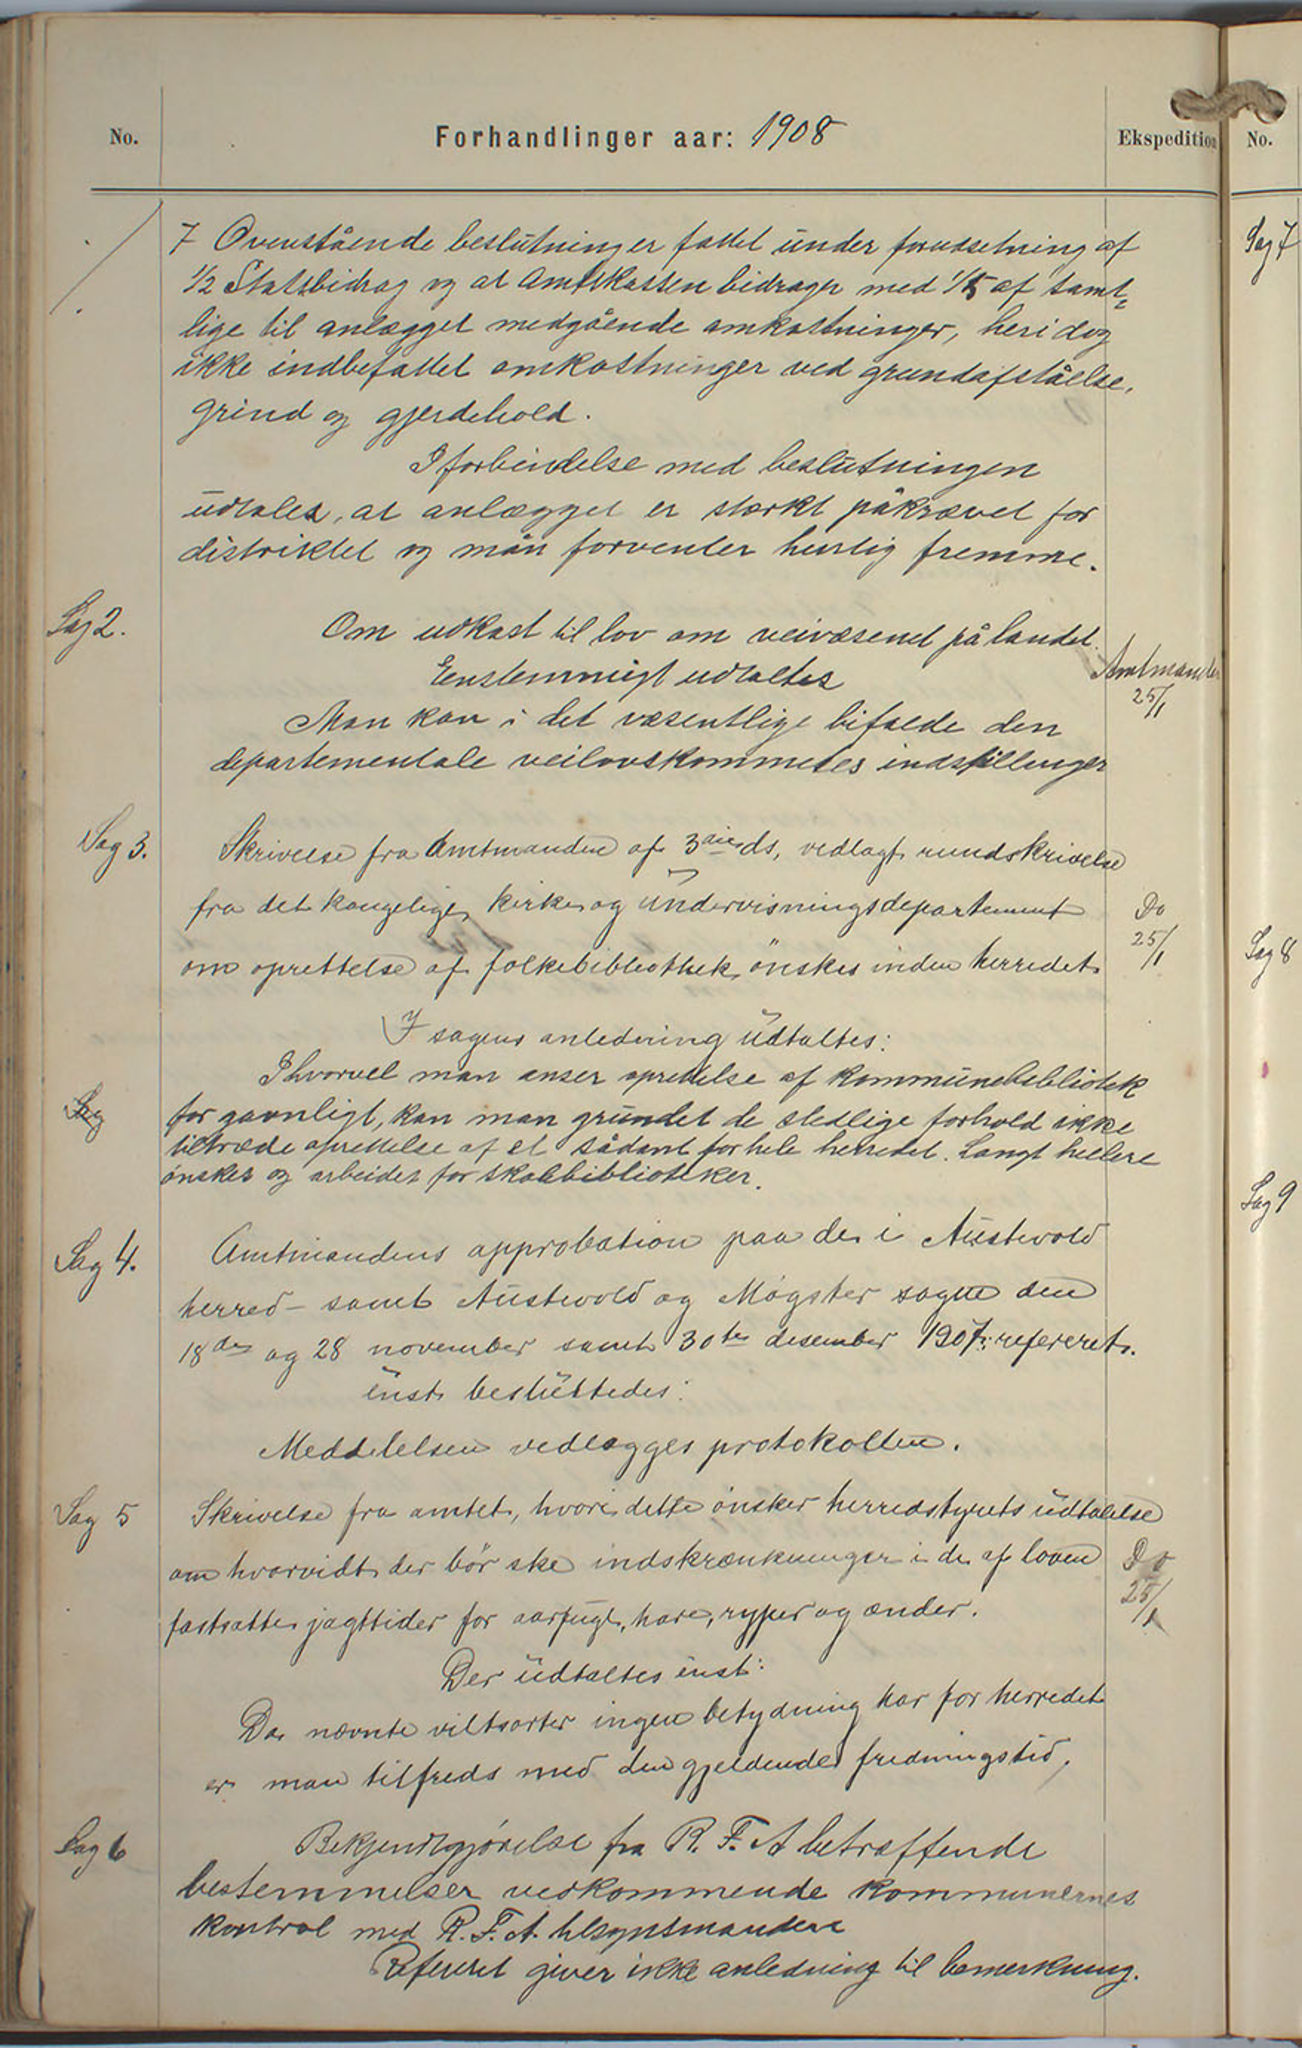 No.
Forhandlinger aar: 1908
Ekspedition
No.
7 Ovenstående beslutninger fattet under forudsetning af
1/2 Statsbidrag og at Amtskassen bidrager med 1/5 af samt-
lige til anlægget medgående omkostninger, heri dog
ikke indbefattet omkostninger ved grundafståelse,
grind og gjerdehold.
I forbindelse med beslutningen
udtales, at anlægget er stærkt påkrævet for
distriktet og man forventer hurtig fremme.
Sag 2.
Om udkast til lov om veivæsenet på landet.
Enstemmigt udtaltes
Amtmanden
25/1
Man kan i det væsentlige bifalde den
departementale veilovskommetes indstillinger
Sag 3.
Skrivelse fra Amtmanden af 3die ds, vedlagt rundskrivelse
fra det kongelige kirke og undervisningsdepartement
Do
25/1
om oprettelse af folkebibliothek ønskes inden herredet
I sagens anledning udtaltes:
Ihvorvel man anser opretelse af kommunebibliotek
Sag
for gavnligt, kan man grundet de stedlige forhold ikke
tiltræde oprettelse af et sådant for hele herredet. Langt hellere
ønskes og arbeides for skolebiblioteker.
Sag 4.
Amtmandens approbation paa de i Austevold
herred - samt Austevold og Møgster sogne den
18de og 28 november samt 30te desember 1907 refereret.
enst. besluttedes:
Meddelelsen vedlægges protokollen.
Sag 5
Skrivelse fra amtet, hvori dette ønsker herredstyrets udtalelse
om hvorvidt der bør ske indskrænkninger i de af loven
Do
25/1
fastsatte jagttider for aarfugl, hare, ryper og ænder.
Der udtaltes enst:
Da nævnte viltsorter ingen betydning har for herredet
er man tilfreds med den gjeldende fredningstid.
Sag 6
Bekjendtgjørelse fra R. F. A betræffende
bestemmelser vedkommende kommunernes
kontrol med R. F. A. tilsynsmandene
Referet giver ikke anledning til bemerkning.
Sag 7
Sag 8
Sag 9